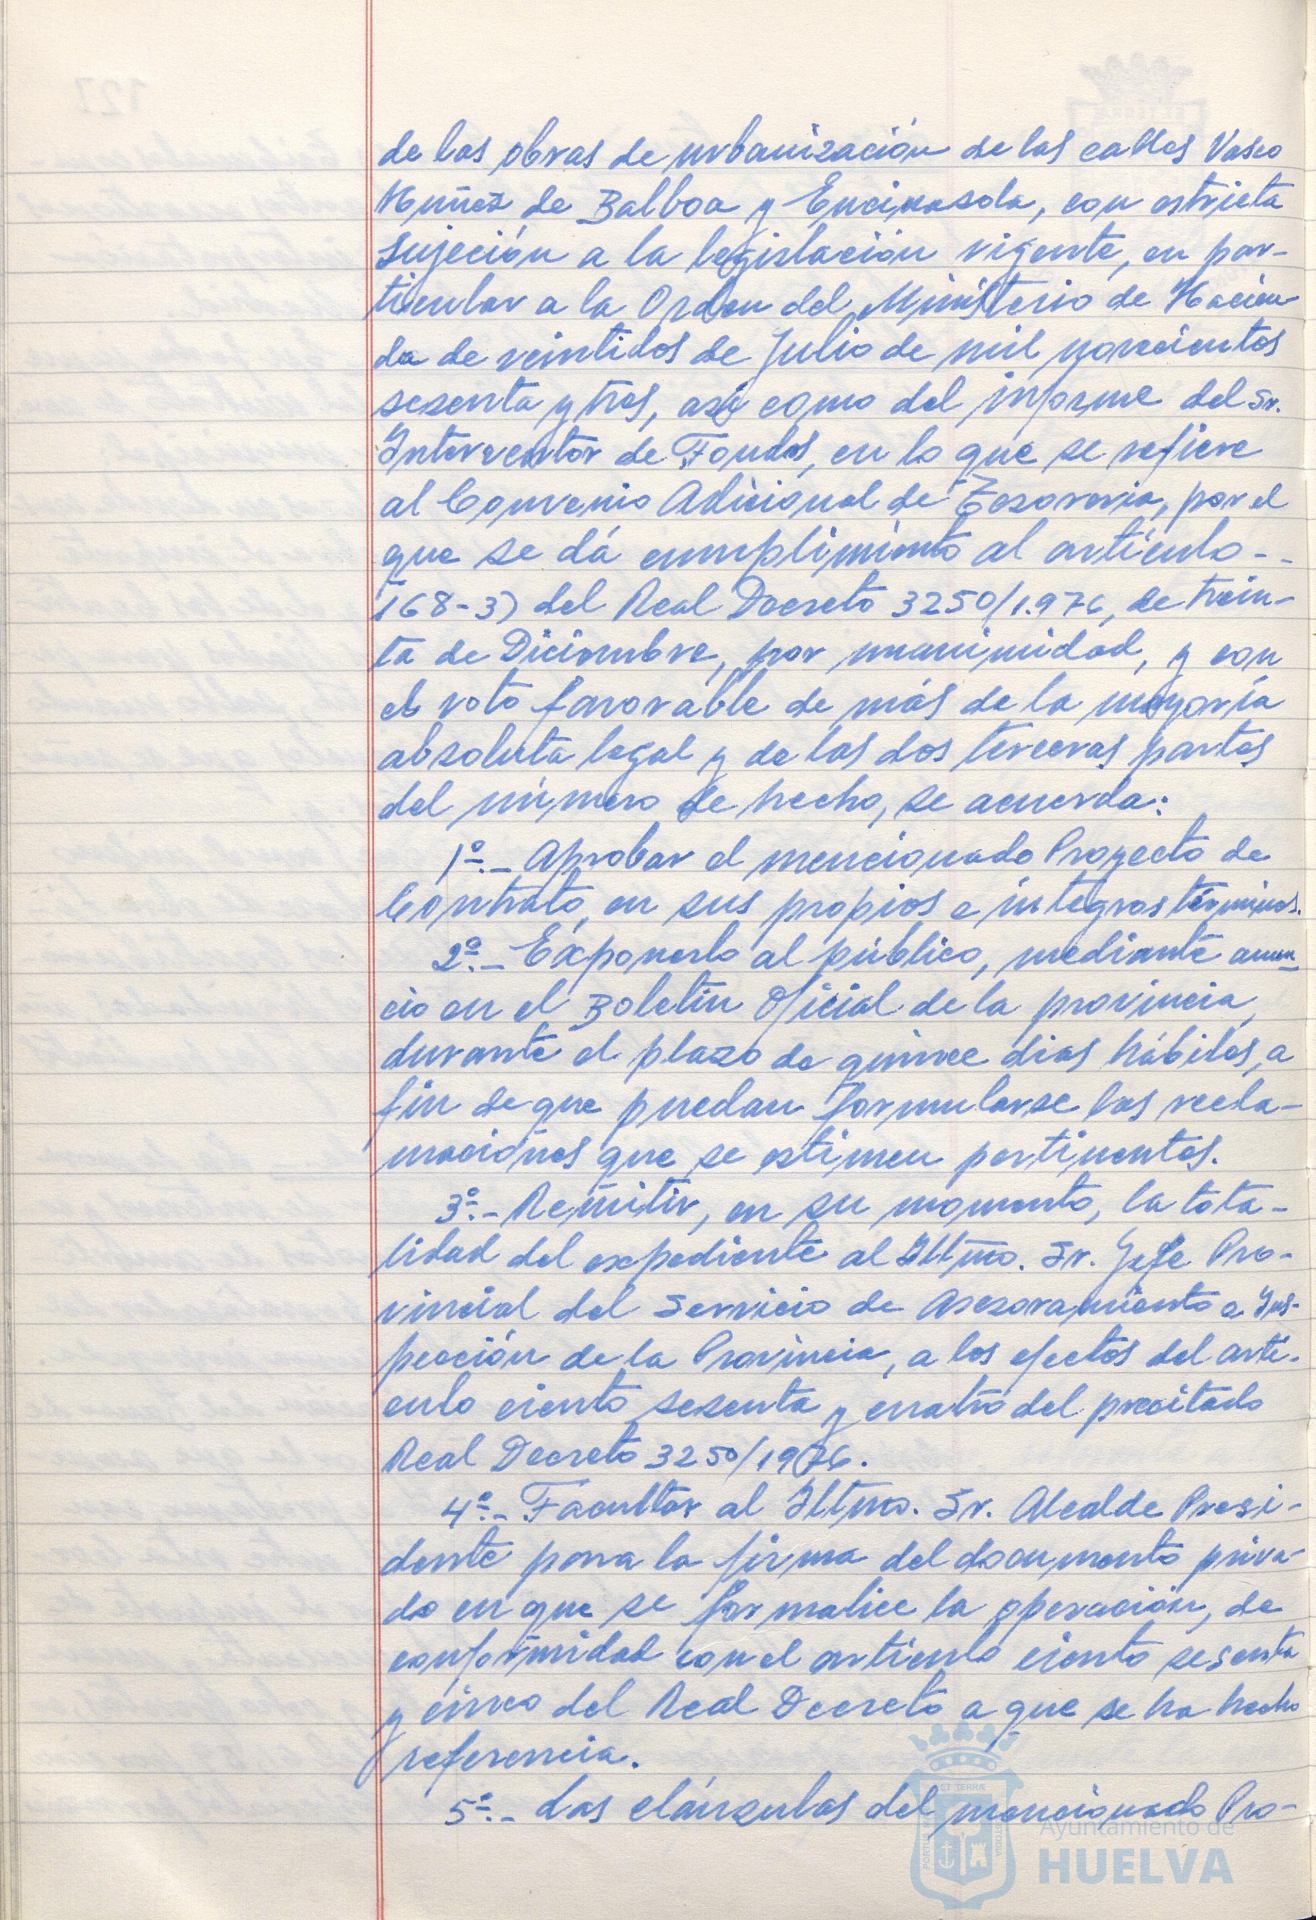 de las obras de urbanización de las calles Vasco
Nuñez de Balboa y Encinasola, con estricta
sujeción a la legislación vigente, en par-
ticular a la Orden del Ministerio de Hacien-
da de veintidos de Julio de mil novecientos
sesenta y tres, así como del informe del Sr.
Interventor de Fondos, en lo que se refiere
al Convenio Adicional de Tesoreria, por el
que se dá cumplimiento al artículo-
168-3) del Real Decreto 3250/1.976, de trein-
ta de Diciembre, por unanimidad, y con
el voto favorable de más de la mayoría
absoluta legal y de las dos terceras partes
del número de hecho, se acuerda:
1º.- Aprobar el mencionado Proyecto de
Contrato, en sus propios e integros términos.
2º.- Exponerlo al público, mediante anun-
cio en el Boletin Oficial de la provincia,
durante el plazo de quince dias hábiles, a
fin de que puedan formularse las recla-
maciones que se estimen pertinentes.
3º.- Remitir, en su momento, la tota-
lidad del expediente al Iltmo. Sr. Jefe Pro-
vincial del Servicio de Asesoramiento e Ins-
pección de la Provincia, a los efectos del artí-
culo ciento sesenta y cuatro del precitado
Real Decreto 3250/1976.
4º.- Facultar al Iltmo. Sr. Alcalde Presi-
dente para la firma del documento priva-
do en que se formalice la operación, de
conformidad con el artículo ciento sesenta
y cinco del Real Decreto a que se ha hecho
referencia.
5º.- Las cláusulas del mencionado Pro-
Ayuntamiento de
HUELVA